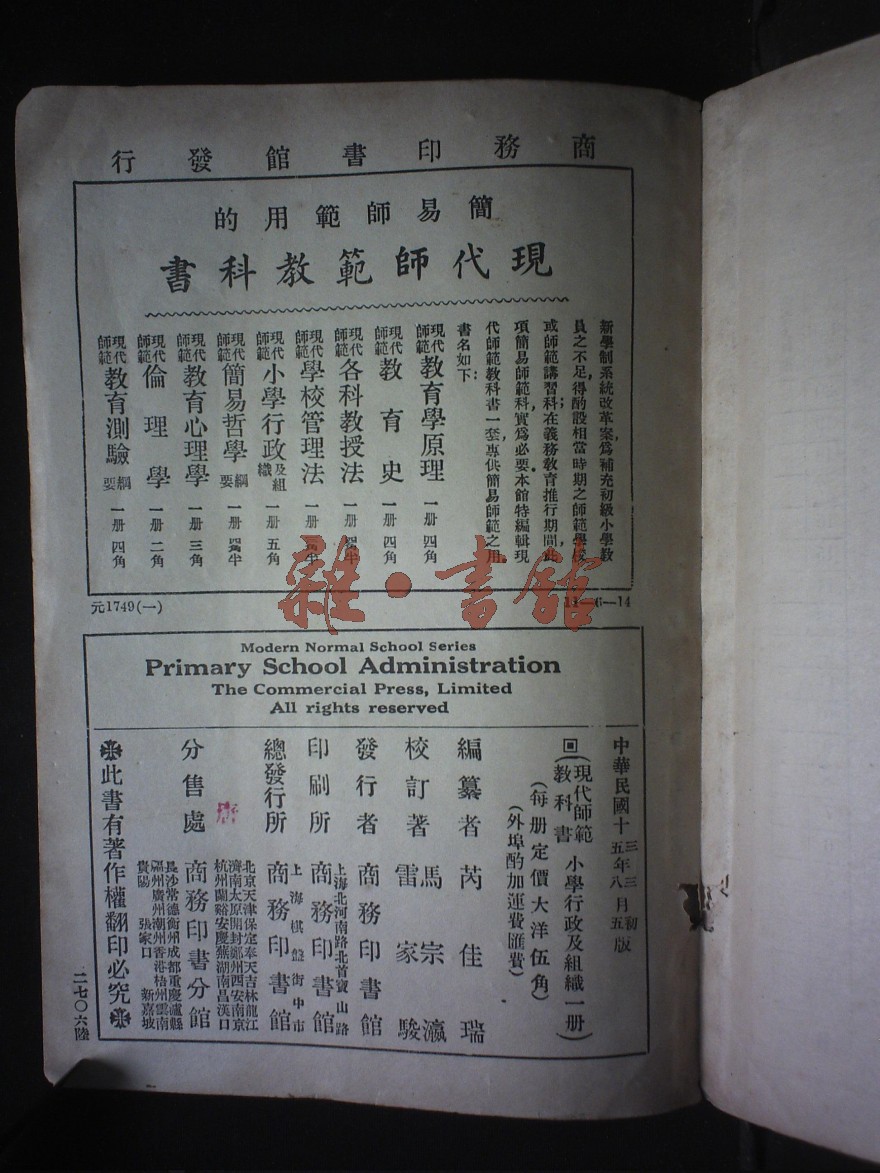 商務印書館發行
簡易師範用的
現代師範教科書
新學制系統改革案，爲補充初級小學教
員之不足，得酌設相當時期之師範學校
或師範講習科；在義務教育推行期間，此
項簡易師範科，實爲必要．本館特編輯現
代師範教科書一套，專供簡易師範之用，
書名如下：
現代師範 教育學原理 一册 四角
現代師範 教育史 一册 四角
現代師範 各科教授法 一册
現代師範 學校管理法 一册
現代師範 小學行政及組織 一册 五角
現代師範 簡易哲學綱要 一册
現代師範 教育心理學 一册 三角
現代師範 倫理學 一册 二角
現代師範 教育測驗綱要 一册 四角
元1749(一)
14—6—14
雜·書館
Modern Normal School Series
Primary School Administration
The Commercial Press, Limited
All rights reserved
中華民國十三年三月初版
五年八月五版
(現代師範教科書 小學行政及組織一册)
(每册定價大洋伍角)
(外埠酌加運費匯費)
編纂者 芮佳瑞
校訂著 馬宗瀛
雷家駿
發行者 商務印書館
上海北河南路北首寶山路
印刷所 商務印書館
上海棋盤街中市
總發行所 商務印書館
北京天津保定奉天吉林龍江
濟南太原開封鄭州西安南京
杭州蘭谿安慶蕪湖南昌漢口
分售處 商務印書分館
長沙常德衡州成都重慶瀘縣
福州廣州潮州香港梧州雲南
貴陽 張家口 新嘉坡
此書有著作權翻印必究
二七〇六陸